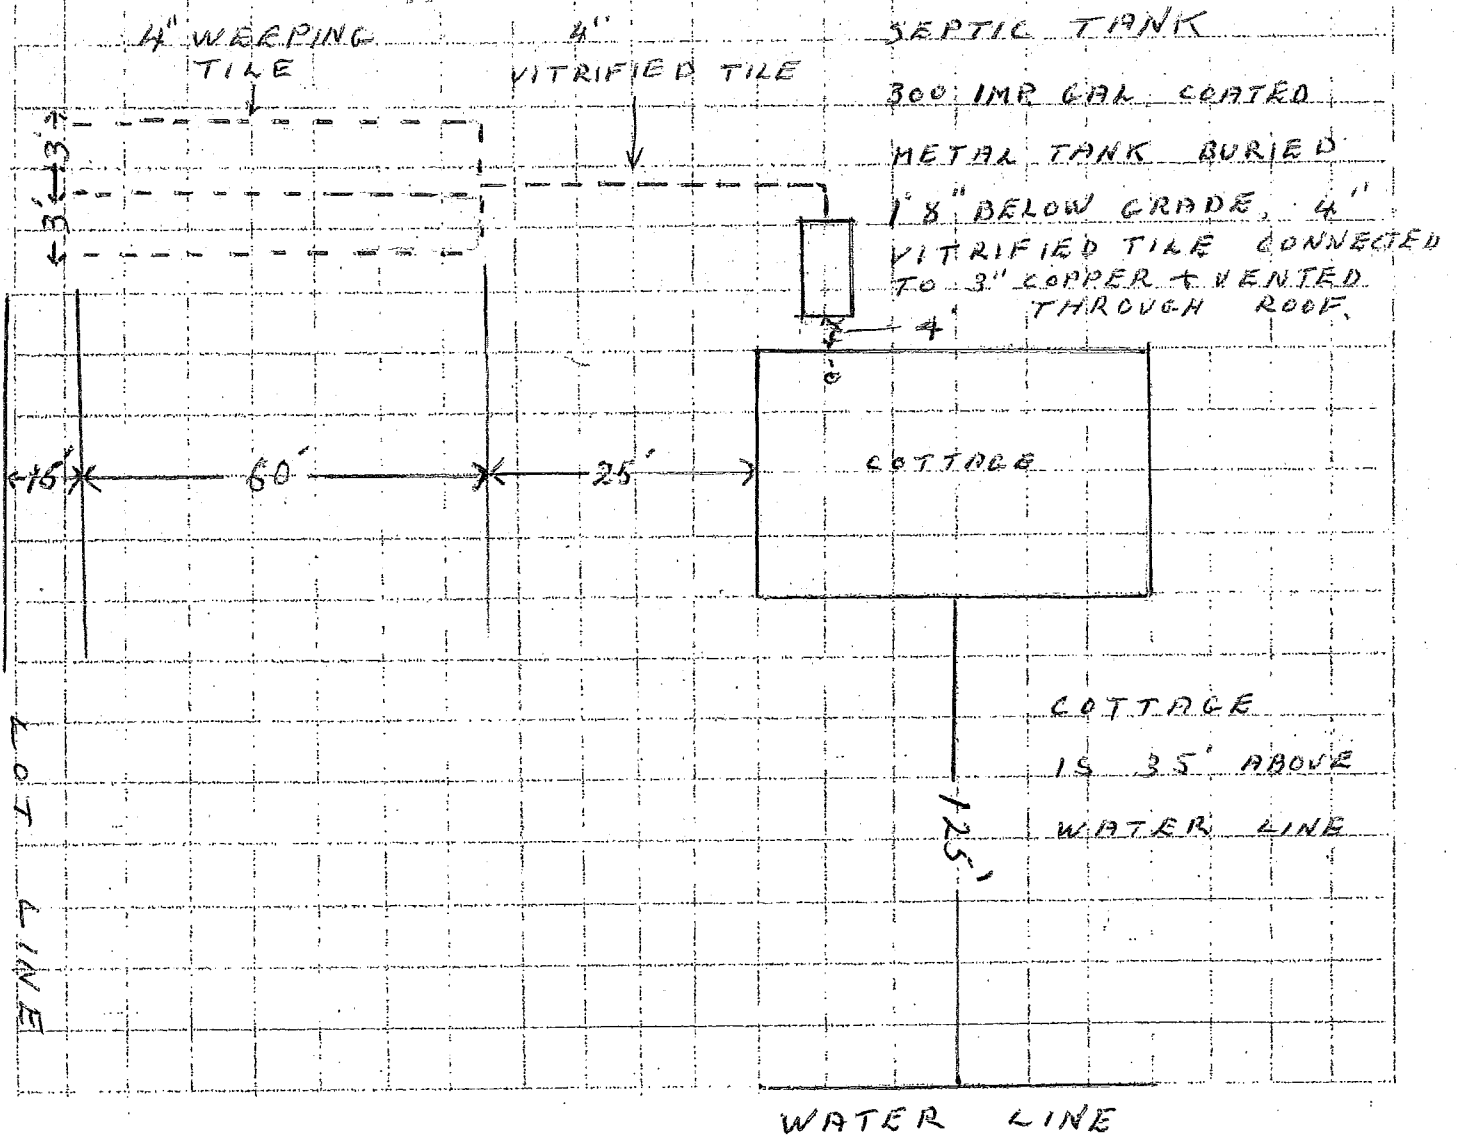 4" WEEPING
TILE
4"
VITRIFIED TILE
SEPTIC TANK
300 IMP GAL COATED
METAL TANK BURIED
1'8" BELOW GRADE, 4"
VITRIFIED TILE CONNECTED
TO 3" COPPER + VENTED
THROUGH ROOF.
3'
3'
4'
15'
60'
25'
COTTAGE
COTTAGE
IS 35' ABOVE
WATER LINE
125'
LOT LINE
WATER LINE